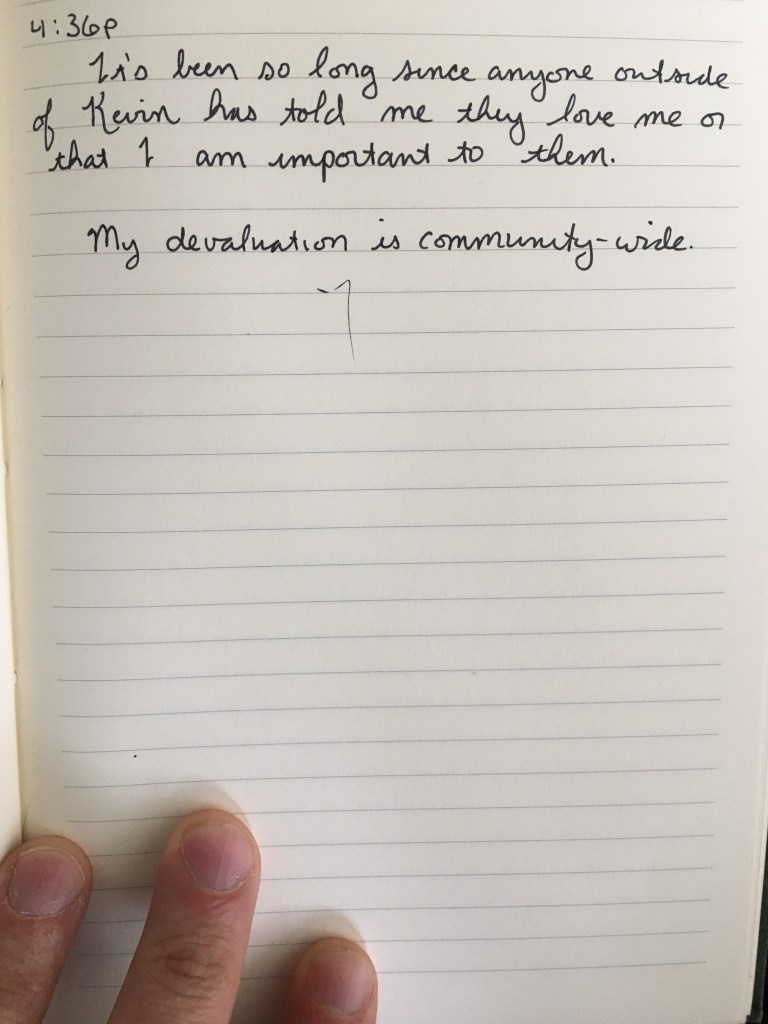 4:36p
It's been so long since anyone outside
of Kevin has told me they love me or
that I am important to them.
My devaluation is community-wide.